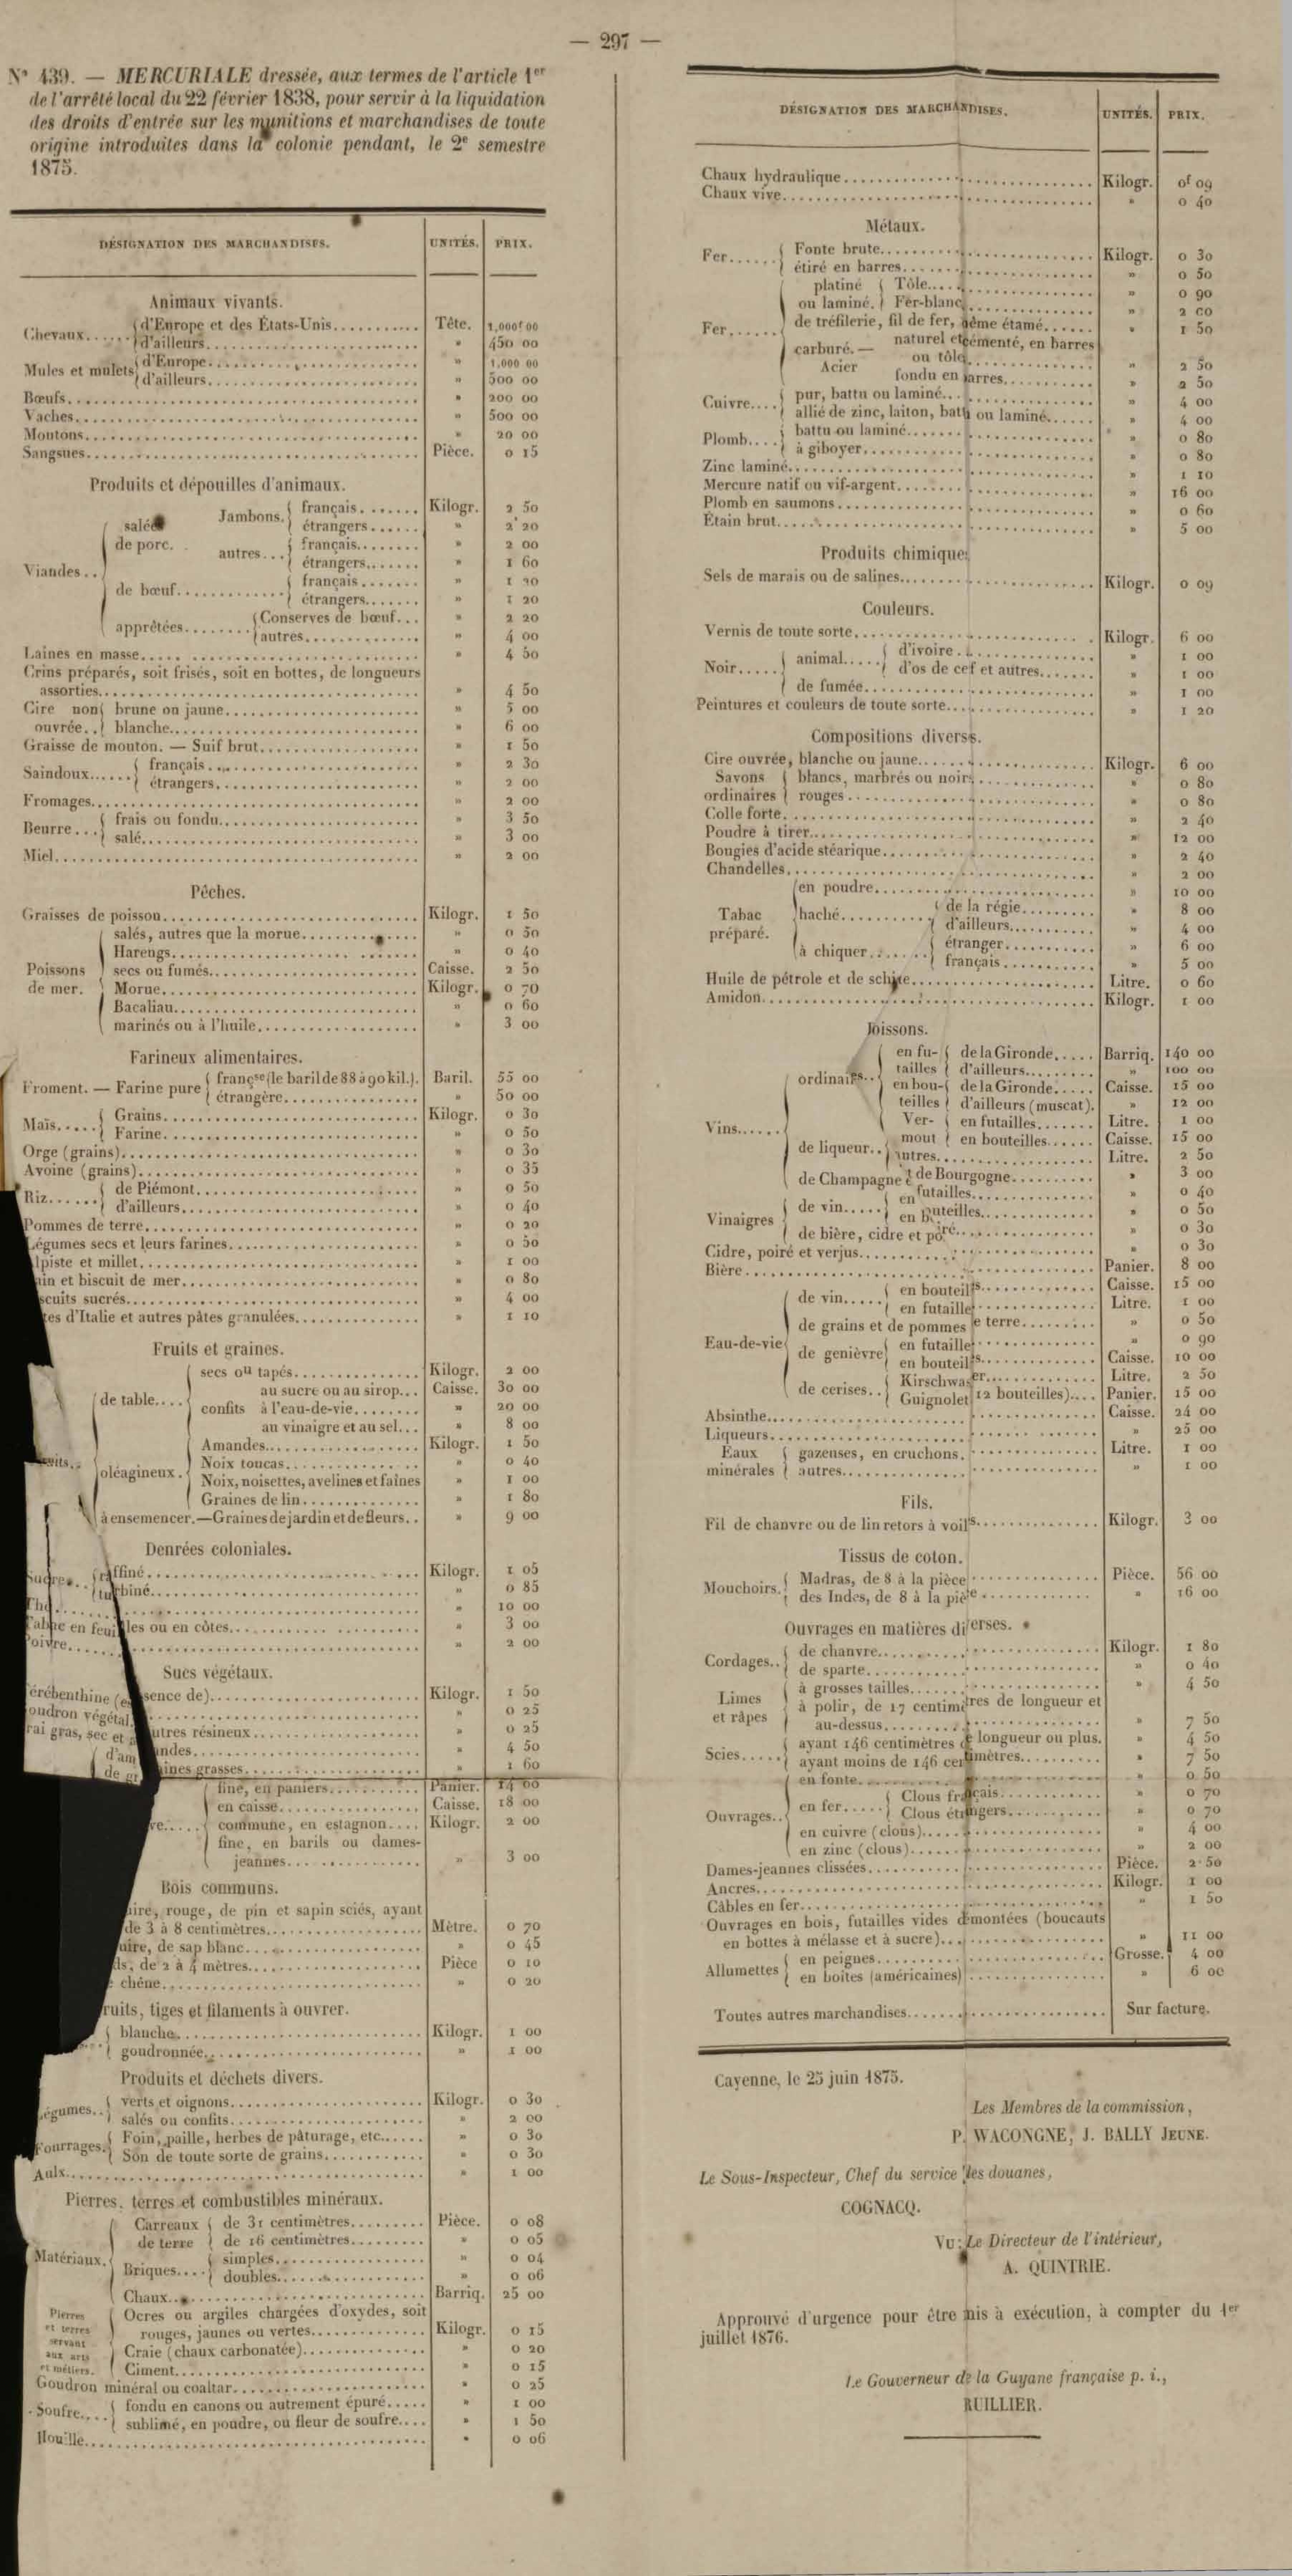 — 297 —
N° 439. — MERCURIALE dressée, aux termes de l'article 1er
de l'arrêté local du 22 février 1838, pour servir à la liquidation
des droits d'entrée sur les munitions et marchandises de toute
origine introduites dans la colonie pendant, le 2e semestre
1875.
DÉSIGNATION DES MARCHANDISES. UNITÉS. PRIX.
Animaux vivants.
Chevaux...... d'Europe et des États-Unis........... Tête. 1,000f 00
d'ailleurs........... » 450 00
Mules et mulets d'Europe........... » 1,000 00
d'ailleurs........... » 500 00
Bœufs........... » 200 00
Vaches........... » 500 00
Moutons........... » 20 00
Sangsues........... Pièce. 0 15
Produits et dépouilles d'animaux.
Viandes.. salées de porc. Jambons. français....... Kilogr. 2 50
étrangers...... » 2 20
autres... français........ » 2 00
étrangers....... » 1 60
de bœuf............ français....... »
étrangers....... » 1 20
apprêtées........ Conserves de bœuf... » 2 20
autres.............. » 4 00
Laines en masse........... » 4 50
Crins préparés, soit frisés, soit en bottes, de longueurs
assorties........... » 4 50
Cire non ouvrée.. brune ou jaune........... » 5 00
blanche........... » 6 00
Graisse de mouton. — Suif brut........... » 1 50
Saindoux...... français........... » 2 30
étrangers........... » 2 00
Fromages........... » 2 00
Beurre... frais ou fondu........... » 3 50
salé........... » 3 00
Miel........... » 2 00
Pêches.
Graisses de poisson........... Kilogr. 1 50
Poissons de mer. salés, autres que la morue........... » 0 50
Harengs........... » 0 40
secs ou fumés........... Caisse. 2 50
Morue........... Kilogr. 0 70
Bacaliau........... » 0 60
marinés ou à l'huile........... » 3 00
Farineux alimentaires.
Froment. — Farine pure françse (le baril de 88 à 90 kil.). Baril. 55 00
étrangère........... » 50 00
Maïs..... Grains........... Kilogr. 0 30
Farine........... » 0 50
Orge (grains)........... » 0 30
Avoine (grains)........... » 0 35
Riz...... de Piémont........... » 0 50
d'ailleurs........... » 0 40
Pommes de terre........... » 0 20
Légumes secs et leurs farines........... » 0 50
lpiste et millet........... » 1 00
ain et biscuit de mer........... » 0 80
scuits sucrés........... » 4 00
tes d'Italie et autres pâtes granulées........... » 1 10
Fruits et graines.
de table.... secs ou tapés........... Kilogr. 2 00
confits au sucre ou au sirop... Caisse. 30 00
à l'eau-de-vie........ » 20 00
au vinaigre et au sel... » 8 00
its.. oléagineux. Amandes........... Kilogr. 1 50
Noix toucas........... » 0 40
Noix, noisettes, avelines et faînes » 1 00
Graines de lin........... » 1 80
à ensemencer.—Graines de jardin et de fleurs.. » 9 00
Denrées coloniales.
Sucre... raffiné........... Kilogr. 1 05
turbiné........... » 0 85
Thé........... » 10 00
Tabac en feuilles ou en côtes........... » 3 00
Poivre........... » 2 00
Sucs végétaux.
érébenthine (essence de)........... Kilogr. 1 50
oudron végétal........... » 0 25
rai gras, sec et autres résineux........... » 0 25
d'amandes........... » 4 50
de graines grasses........... » 1 60
ve..... fine, en paniers........... Panier. 14 00
en caisse........... Caisse. 18 00
commune, en estagnon.... Kilogr. 2 00
fine, en barils ou dames-
jeannes........... » 3 00
Bois communs.
ire, rouge, de pin et sapin sciés, ayant
de 3 à 8 centimètres........... Mètre. 0 70
uire, de sap blanc........... » 0 45
ds, de 2 à 4 mètres........... Pièce 0 10
chêne........... » 0 20
ruits, tiges et filaments à ouvrer.
blanche........... Kilogr. 1 00
goudronnée........... » 1 00
Produits et déchets divers.
égumes.. verts et oignons........... Kilogr. 0 30
salés ou confits........... » 2 00
Fourrages. Foin, paille, herbes de pâturage, etc...... » 0 30
Son de toute sorte de grains........... » 0 30
Aulx........... » 1 00
Pierres, terres et combustibles minéraux.
Matériaux. Carreaux de terre de 31 centimètres......... Pièce. 0 08
de 16 centimètres......... » 0 05
Briques.... simples........... » 0 04
doubles........... » 0 06
Chaux........... Barriq. 25 00
Pierres et terres servant aux arts et métiers. Ocres ou argiles chargées d'oxydes, soit
rouges, jaunes ou vertes........... Kilogr. 0 15
Craie (chaux carbonatée)........... » 0 20
Ciment........... » 0 15
Goudron minéral ou coaltar........... » 0 25
Soufre.... fondu en canons ou autrement épuré..... » 1 00
sublimé, en poudre, ou fleur de soufre.... » 1 50
Houille........... » 0 06
DÉSIGNATION DES MARCHANDISES. UNITÉS. PRIX.
Chaux hydraulique........... Kilogr. 0f 09
Chaux vive........... » 0 40
Métaux.
Fer...... Fonte brute........... Kilogr. 0 30
étiré en barres........... » 0 50
Fer...... platiné ou laminé. Tôle........... » 0 90
Fer-blanc........... » 2 00
de tréfilerie, fil de fer, même étamé...... » 1 50
carburé.— Acier naturel et cémenté, en barres
ou tôle........... » 2 50
fondu en barres........... » 2 50
Cuivre.... pur, battu ou laminé........... » 4 00
allié de zinc, laiton, battu ou laminé...... » 4 00
Plomb.... battu ou laminé........... » 0 80
à giboyer........... » 0 80
Zinc laminé........... » 1 10
Mercure natif ou vif-argent........... » 16 00
Plomb en saumons........... » 0 60
Étain brut........... » 5 00
Produits chimiques
Sels de marais ou de salines........... Kilogr. 0 09
Couleurs.
Vernis de toute sorte........... Kilogr. 6 00
Noir..... animal..... d'ivoire........... » 1 00
d'os de cerf et autres....... » 1 00
de fumée........... » 1 00
Peintures et couleurs de toute sorte........... » 1 20
Compositions diverses.
Cire ouvrée, blanche ou jaune........... Kilogr. 6 00
Savons ordinaires blancs, marbrés ou noirs........... » 0 80
rouges........... » 0 80
Colle forte........... » 2 40
Poudre à tirer........... » 12 00
Bougies d'acide stéarique........... » 2 40
Chandelles........... » 2 00
Tabac préparé. en poudre........... » 10 00
haché.......... de la régie......... » 8 00
d'ailleurs......... » 4 00
à chiquer....... étranger.......... » 6 00
français........... » 5 00
Huile de pétrole et de schiste........... Litre. 0 60
Amidon........... Kilogr. 1 00
Boissons.
Vins...... ordinaires.. en futailles de la Gironde..... Barriq. 140 00
d'ailleurs........ » 100 00
en bouteilles de la Gironde..... Caisse. 15 00
d'ailleurs (muscat). » 12 00
de liqueur.. Vermout en futailles....... Litre. 1 00
en bouteilles...... Caisse. 15 00
autres........... Litre. 2 50
de Champagne et de Bourgogne.......... » 3 00
Vinaigres de vin..... en futailles........... » 0 40
en bouteilles........... » 0 50
de bière, cidre et poiré........... » 0 30
Cidre, poiré et verjus........... » 0 30
Bière........... Panier. 8 00
Eau-de-vie de vin..... en bouteilles........... Caisse. 15 00
en futailles........... Litre. 1 00
de grains et de pommes de terre......... » 0 50
de genièvre en futailles........... » 0 90
en bouteilles........... Caisse. 10 00
de cerises.. Kirschwaser........... Litre. 2 50
Guignolet (12 bouteilles).... Panier. 15 00
Absinthe........... Caisse. 24 00
Liqueurs........... » 25 00
Eaux minérales gazeuses, en cruchons........... Litre. 1 00
autres........... » 1 00
Fils.
Fil de chanvre ou de lin retors à voiles........... Kilogr. 3 00
Tissus de coton.
Mouchoirs. Madras, de 8 à la pièce........... Pièce. 56 00
des Indes, de 8 à la pièce........... » 16 00
Ouvrages en matières diverses.
Cordages.. de chanvre........... Kilogr. 1 80
de sparte........... » 0 40
Limes et râpes à grosses tailles........... » 4 50
à polir, de 17 centimètres de longueur et
au-dessus........... » 7 50
Scies..... ayant 146 centimètres de longueur ou plus. » 4 50
ayant moins de 146 centimètres........... » 7 50
Ouvrages.. en fonte........... » 0 50
en fer..... Clous français........... » 0 70
Clous étrangers........... » 0 70
en cuivre (clous)........... » 4 00
en zinc (clous)........... » 2 00
Dames-jeannes clissées........... Pièce. 2 50
Ancres........... Kilogr. 1 00
Câbles en fer........... » 1 50
Ouvrages en bois, futailles vides démontées (boucauts
en bottes à mélasse et à sucre)........... » 11 00
Allumettes en peignes........... Grosse. 4 00
en boîtes (américaines)........... » 6 00
Toutes autres marchandises........... Sur facture.
Cayenne, le 25 juin 1875.
Les Membres de la commission,
P. WACONGNE, J. BALLY JEUNE.
Le Sous-Inspecteur, Chef du service des douanes,
COGNACQ.
VU: Le Directeur de l'intérieur,
A. QUINTRIE.
Approuvé d'urgence pour être mis à exécution, à compter du 1er
juillet 1876.
Le Gouverneur de la Guyane française p. i.,
RUILLIER.